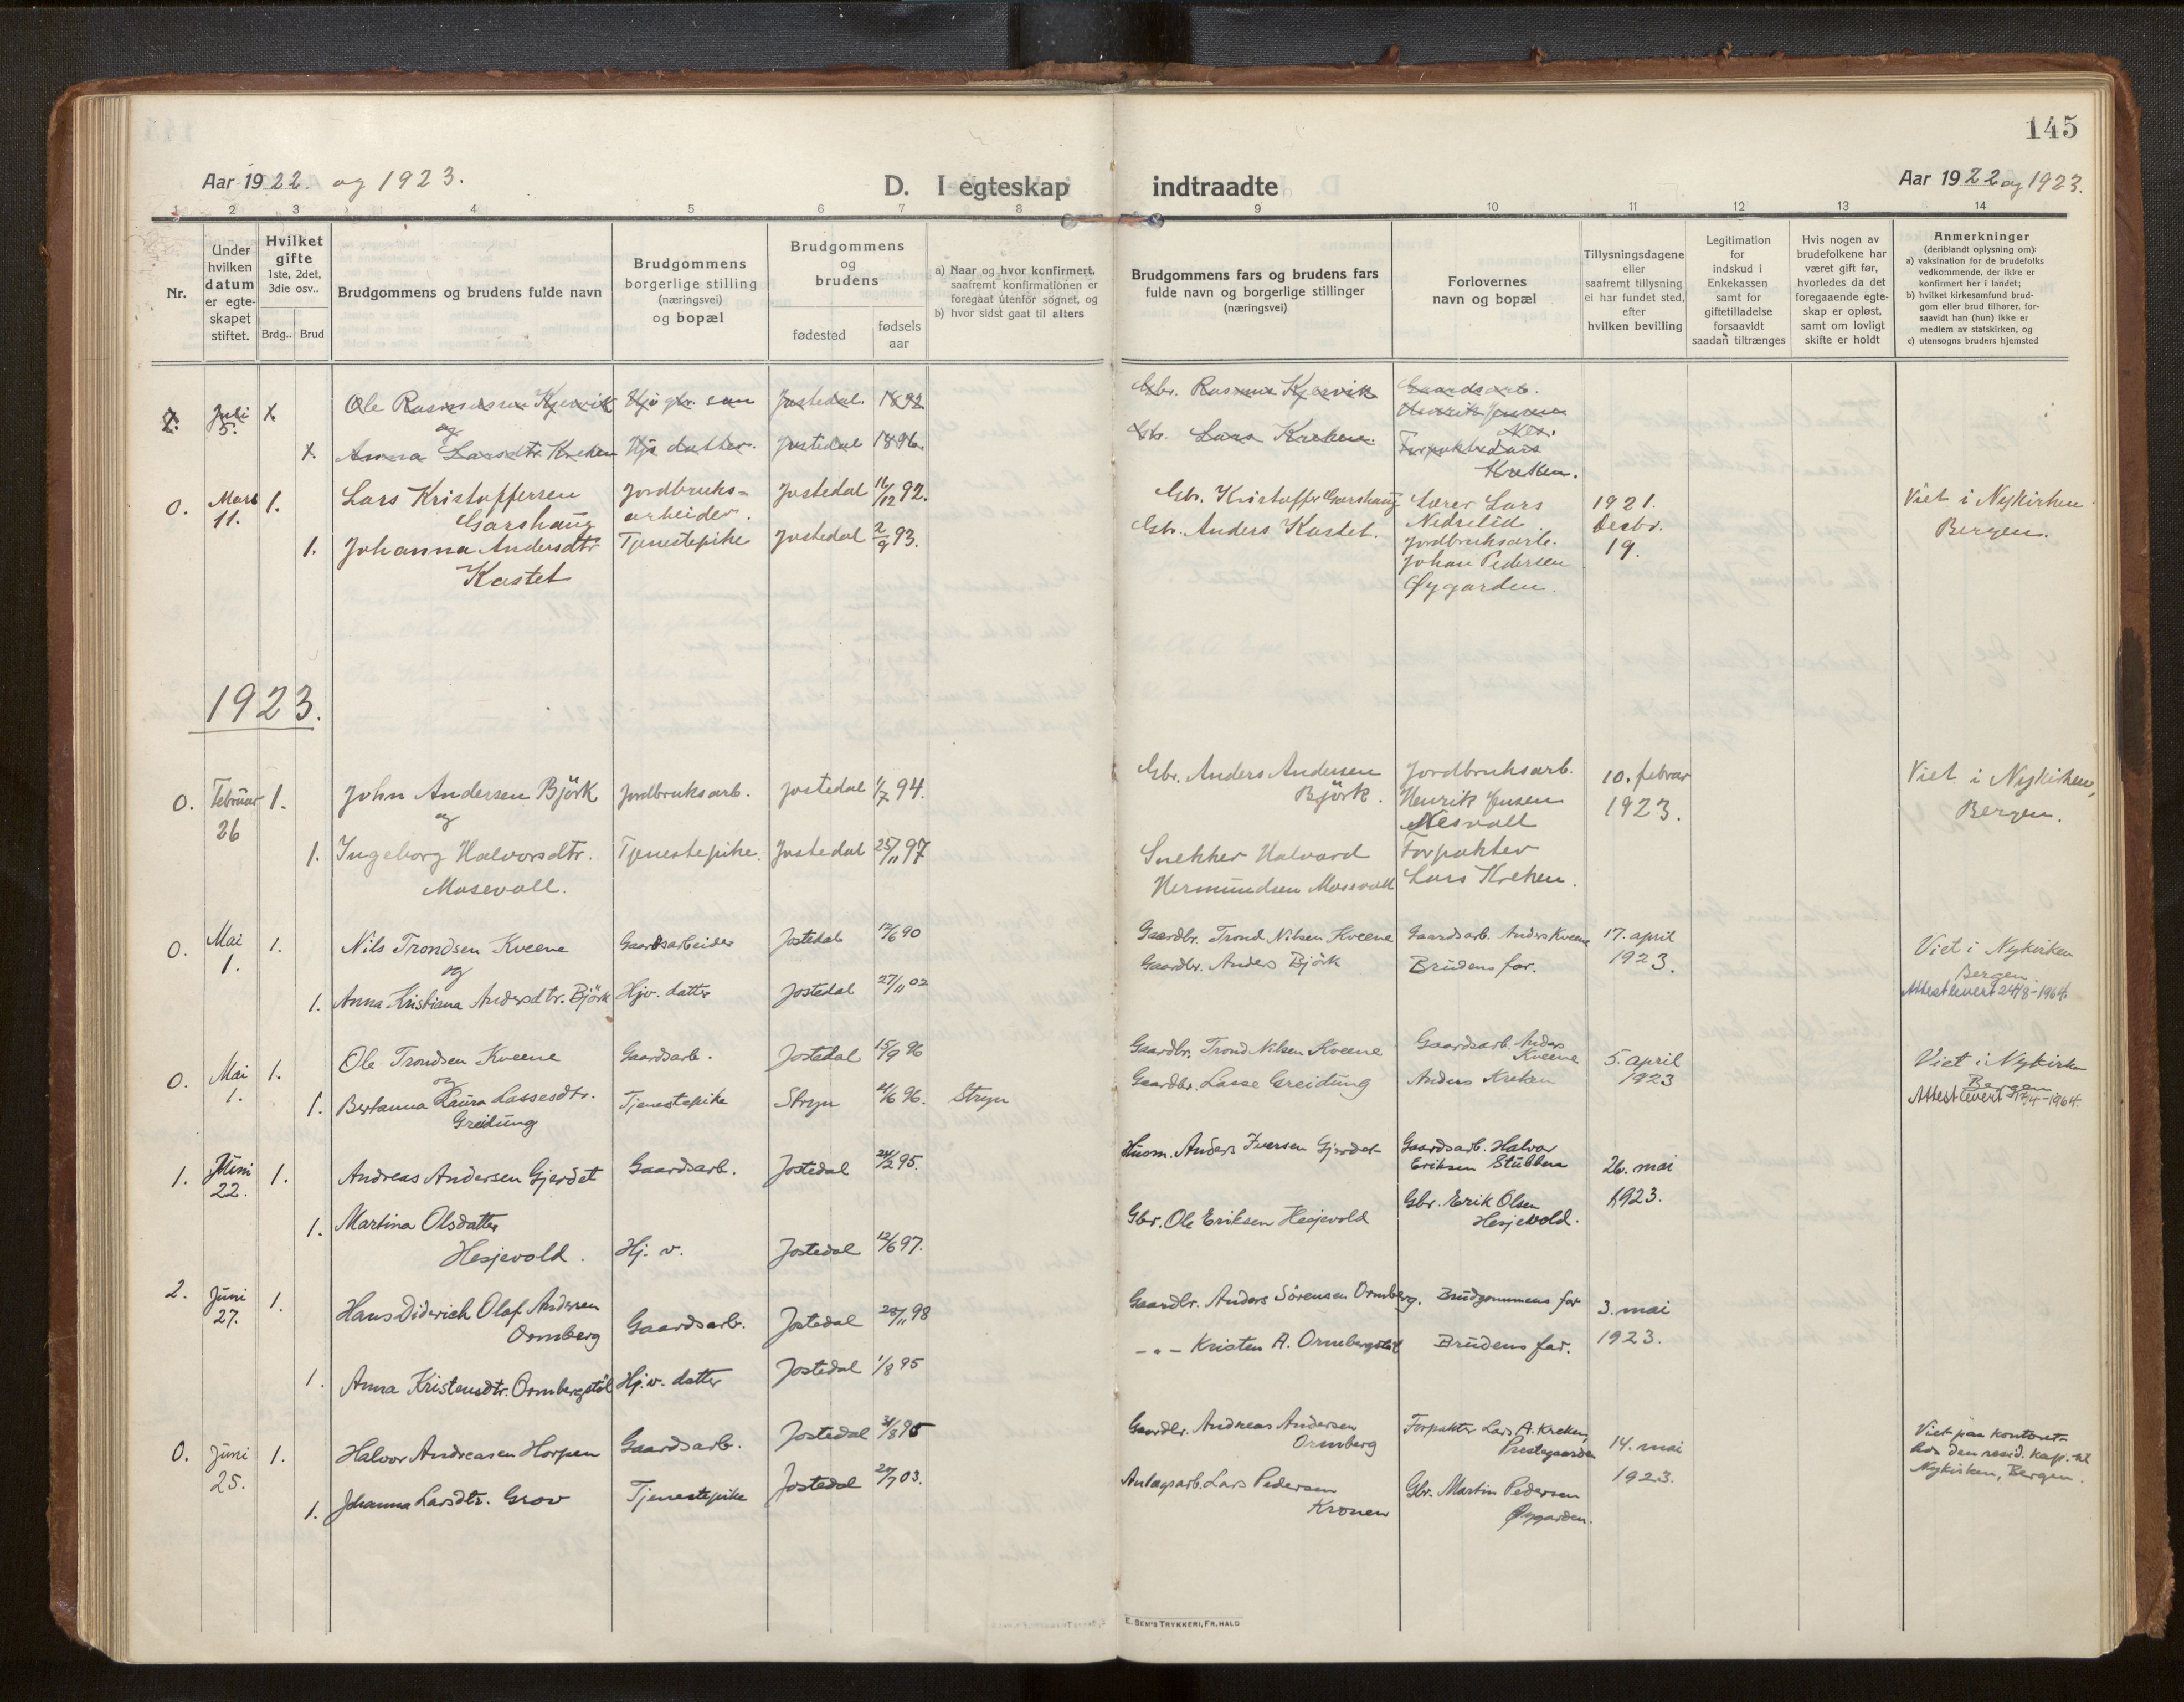 145
Aar 1922. og 1923.
D. I egteskap indtraadte
Aar 1922 og 1923.
1 2 3 4 5 6 7 8 9 10 11 12 13 14
Nr.
Under hvilken datum er egteskapet stiftet.
Hvilket gifte 1ste, 2det, 3die osv..
Brdg.. Brud
Brudgommens og brudens fulde navn
Brudgommens borgerlige stilling (næringsvei) og bopæl
Brudgommens og brudens
fødested
fødsels aar
a) Naar og hvor konfirmert, saafremt konfirmationen er foregaat utenfor sognet, og
b) hvor sidst gaat til alters
Brudgommens fars og brudens fars fulde navn og borgerlige stillinger (næringsvei)
Forlovernes navn og bopæl
Tillysningsdagene eller saafremt tillysning ei har fundet sted, efter hvilken bevilling
Legitimation for indskud i Enkekassen samt for giftetilladelse forsaavidt saadan tiltrænges
Hvis nogen av brudefolkene har været gift før, hvorledes da det foregaaende egteskap er opløst, samt om lovligt skifte er holdt
Anmerkninger (deriblandt oplysning om):
a) vaksination for de brudefolks vedkommende, der ikke er konfirmert her i landet;
b) hvilket kirkesamfund brudgom eller brud tilhører, forsaavidt han (hun) ikke er medlem av statskirken, og
c) utensogns bruders hjemsted
Juli 5. Ole Rasmussen Kjervik Jostedal 1892 Gbr. Rasmus Kjervik Gaardsarb. Henrik Jensen
og
Anna Larsdtr. Kreken Hjv datter. Jostedal 1896. Gbr. Lars Kreken. Forpakter Lars Kreken.
0. Mars 11. 1. Lars Kristoffersen Garshaug Jordbruksarbeider. Jostedal 16/12 92. Gbr. Kristoffer Garshaug Lærer Lars Nedrelid 1921. Decbr. 19. Viet i Nykirken Bergen.
1. Johanna Andersdtr Kastet Tjenestepike Jostedal 2/9 93. Gbr. Anders Kastet. Jordbruksarb. Johan Pedersen Øygarden.
1923.
0. Februar 26 1. John Andersen Björk Jordbruksarb. Jostedal 1/7 94. Gbr. Anders Andersen Björk. Jordbruksarb. Henrik Jensen Nesvoll 10. februar 1923. Viet i Nykirken, Bergen.
og
1. Ingeborg Halvorsdtr. Mosevoll. Tjenestepike. Jostedal 25/11 97 Snekker Halvard Hermundsen Mosevoll Forpakter Lars Kreken.
0. Mai 1. 1. Nils Trondsen Kveene Gaardsarbeider Jostedal 12/6 90 Gaardbr. Trond Nilsen Kveene Gaardsarb. Anders Kveene 17. april 1923. Viet i Nykirken Bergen.
og
1. Anna Kristiana Andersdtr. Björk Hjv. datter Jostedal 27/11 02 Gaardbr. Anders Björk Brudens far. Attest levert 24/8-1964.
0. Mai 1. 1. Ole Trondsen Kveene Gaardsarb. Jostedal 15/9 96 Gaardbr. Trond Nilsen Kveene Gaardsarb. Anders Kveene 5. april 1923 Viet i Nykirken Bergen
og
1. Bertanna Laura Lassesdtr. Greidung Tjenestepike Stryn 21/6 96. Stryn Gaardbr. Lasse Greidung Anders Kreken Attest levert -1964.
1. Juni 22. 1. Andreas Andersen Gjerdet Gaardsarb. Jostedal 24/2 95. Husm. Anders Iversen Gjerdet Gaardsarb. Halvor Eriksen Stubben 26. mai 1923.
1. Martina Olsdatter Hesjevold. Hj. v. Jostedal 12/6 97. Gbr. Ole Eriksen Hesjevold Gbr. Erik Olsen Hesjevold.
2. Juni 27. 1. Hans Diderich Olaf Andersen Ormberg Gaardsarb. Jostedal 28/11 98 Gaardbr. Anders Sørensen Ormberg. Brudgommens far 3. mai 1923.
1. Anna Kristensdtr. Ormbergstöl Hj. v. datter Jostedal 1/8 95 -"- Kristen A. Ormbergstöl Brudens far.
0. Juni 25. 1. Halvor Andreasen Horpen Gaardsarb. Jostedal 31/8 95 Gaardbr. Andreas Andersen Ormberg Forpakter Lars A. Kreken, Prestegaarden 14. mai 1923. Viet paa kontoret hos den resid. kap. til Nykirken, Bergen.
1. Johanna Larsdtr. Grov Tjenestepike Jostedal 27/7 03. Anlægsarb. Lars Pedersen Kronen Gbr. Martin Pedersen Øygarden.
E. SEM'S TRYKKERI, FR.HALD